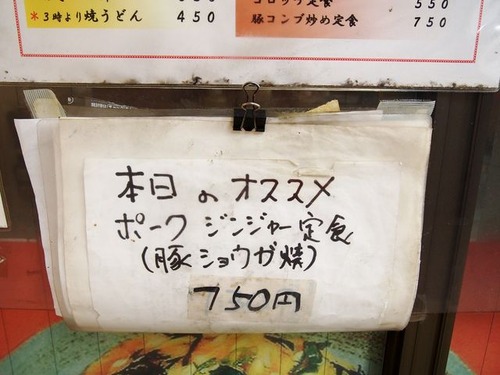 ＊3時より焼うどん 450
コロッケ定食 550
豚コンブ炒め定食 750
本日のオススメ
ポーク ジンジャー定食
(豚ショウガ焼)
750円